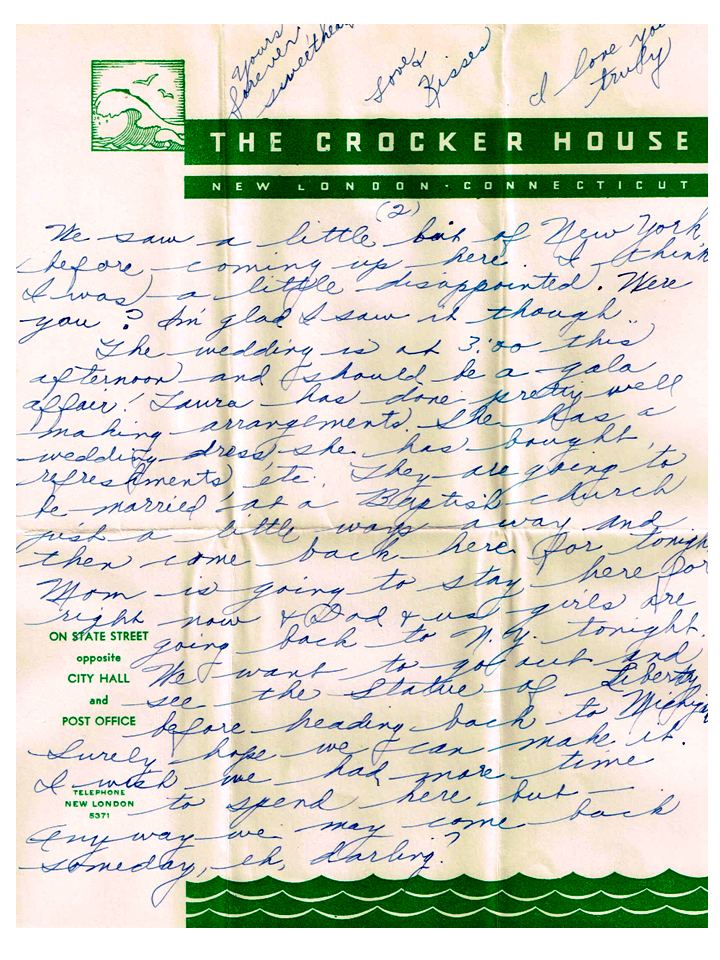 Yours
forever
sweetheart
Love &
Kisses
I love you
truly
THE CROCKER HOUSE
NEW LONDON · CONNECTICUT
(2)
We saw a little bit of New York
before coming up here. I think
I was a little disappointed. Were
you? I'm glad I saw it though.
The wedding is at 3:00 this
afternoon and should be a gala
affair! Laura has done pretty well
making arrangements. She has a
wedding dress she has bought,
refreshments, etc. They are going to
be married at a Baptist church
just a little ways away and
then come back here for tonight
Mom is going to stay here for
right now & Dad & us girls are
going back to N.Y. tonight.
We want to go out and
see the Statue of Liberty
before heading back to Michigan
Surely hope we can make it.
I wish we had more time
to spend here but –
Anyway we may come back
someday, eh, darling?
ON STATE STREET
opposite
CITY HALL
and
POST OFFICE
TELEPHONE
NEW LONDON
5371